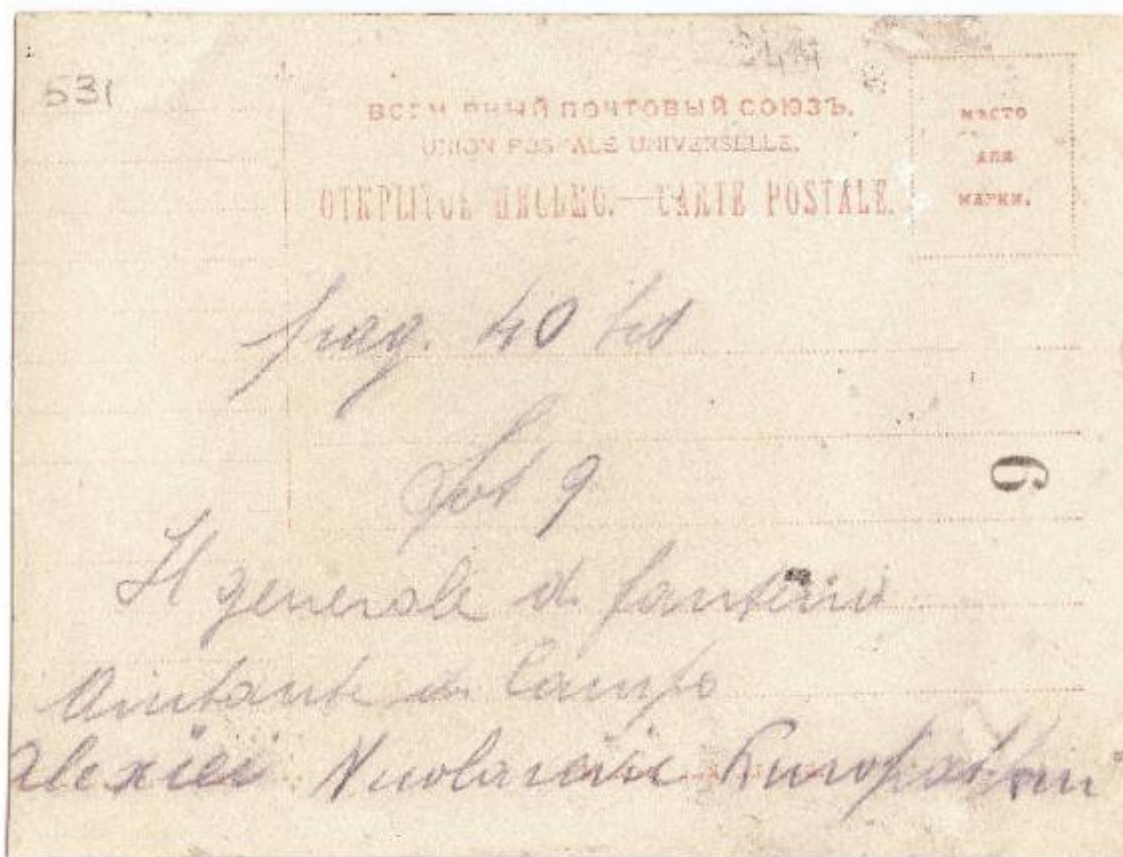 531
ВСЕМИРНЫЙ ПОЧТОВЫЙ СОЮЗЪ.
UNION POSTALE UNIVERSELLE.
ОТКРЫТОЕ ПИСЬМО.—CARTE POSTALE.
МѢСТО
ДЛЯ
МАРКИ.
pag. 40
9
6
Il generale di fanteria
Aiutante di Campo
Alexiei Nicolaievic Kuropatkin